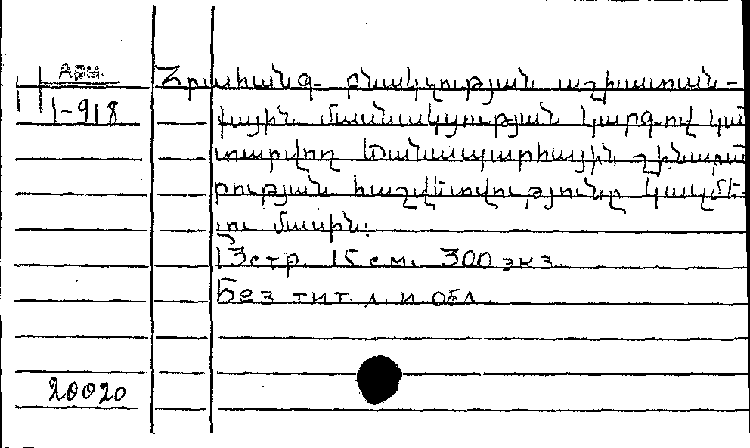 АРМ.
1-918
Հրահանգ բնակչության աշխատան-
քային մասնակցության կարգով կա
տարվող ճանապարհային շինարա
րության հաշվետվությունը կազմե-
լու մասին:
13 стр. 15 см. 300 экз
Без тит. л. и обл.
20020